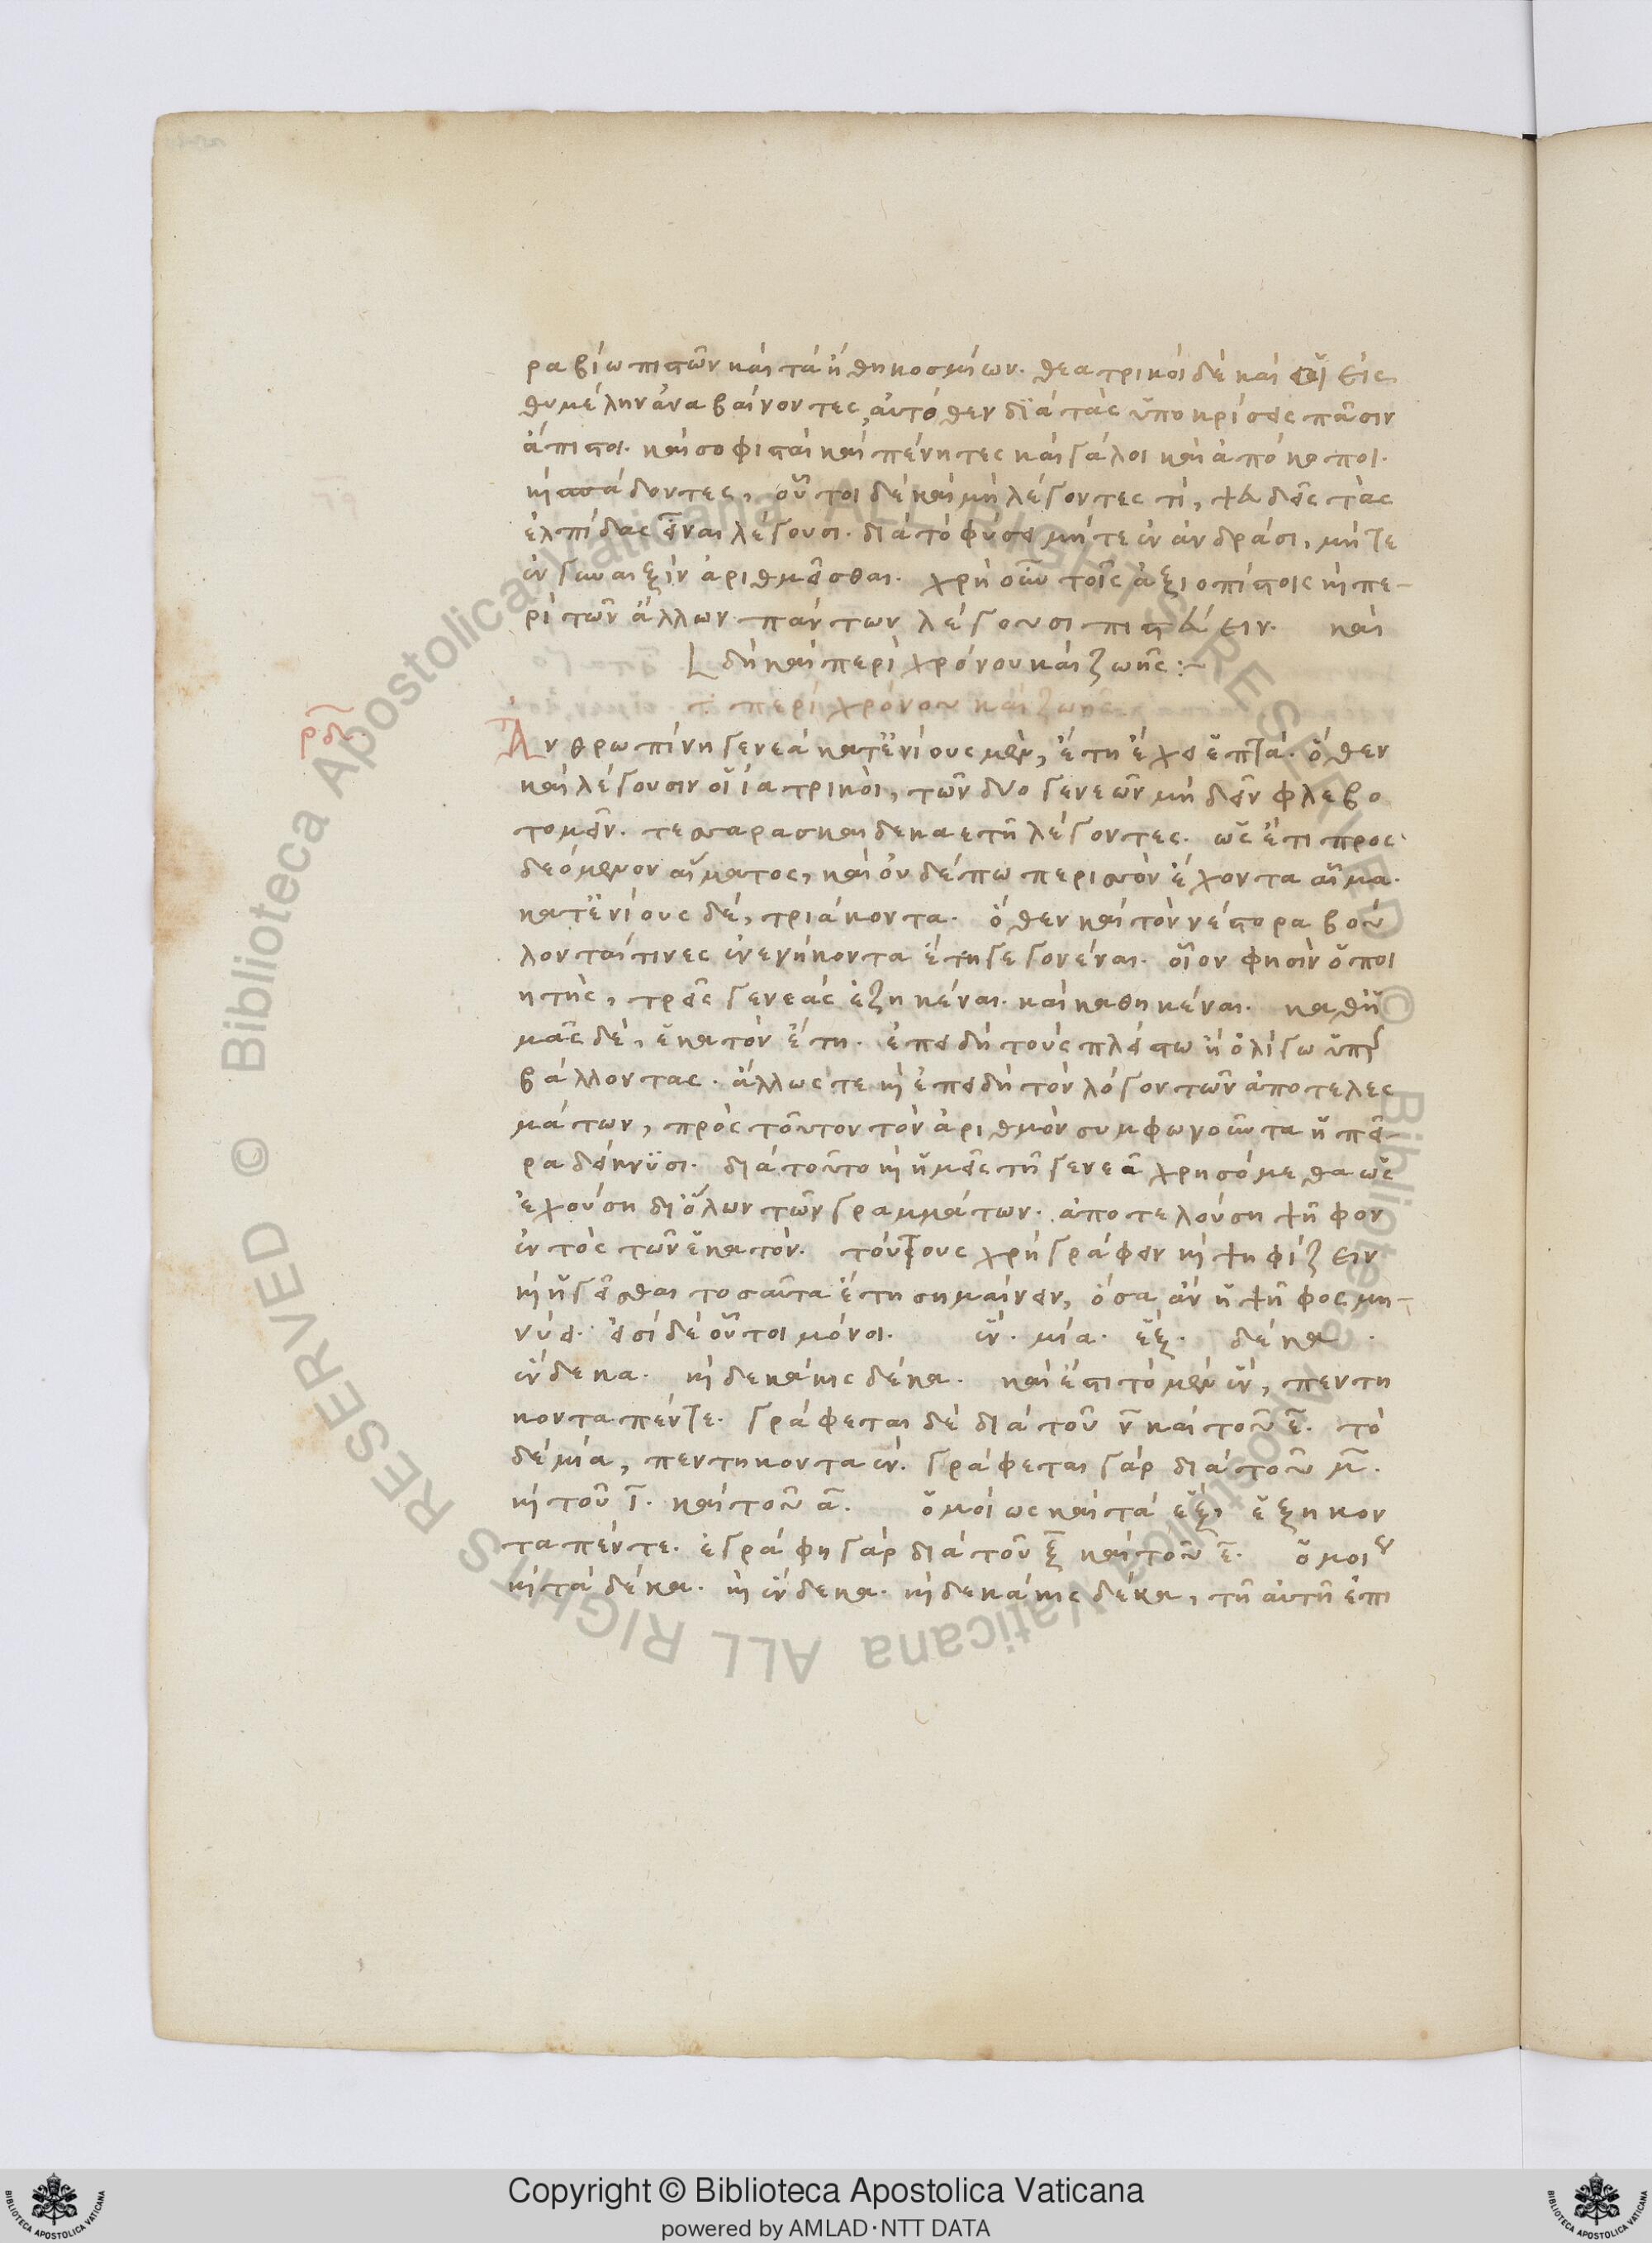 ρα βίω πιστῶν καὶ τὰ ἤθη κοσμίων. θεατρικοὶ δὲ καὶ οἱ εἰς
θυμέλην ἀναβαίνοντες, αὐτόθεν διὰ τὰς ὑποκρίσεις πᾶσιν
ἄπιστοι. καὶ σοφισταὶ καὶ πένητες καὶ γάλοι καὶ ἀπόκοποι.
καὶ σπάδοντες, οὗτοι δὲ καὶ μὴ λέγοντες τί, ψευδεῖς τὰς
ἐλπίδας εἶναι λέγουσι. διὰ τὸ φύσει μήτε ἐν ἀνδράσι, μήτε
ἐν γυναιξὶν ἀριθμεῖσθαι. χρὴ οὖν τοῖς ἀξιοπίστοις καὶ πε-
ρὶ τῶν ἄλλων πάντων λέγουσι πιστεύειν. καὶ
δὴ καὶ περὶ χρόνου καὶ ζωῆς :~
περὶ χρόνου καὶ ζωῆς
ρδ
Ἀνθρωπίνη γενεὰ κατ' ἐνίους μὲν, ἔτη ἔχει ἑπτά. ὅθεν
καὶ λέγουσιν οἱ ἰατρικοί, τῶν δύο γενεῶν μὴ δεῖν φλεβο
τομεῖν. τεσσαρασκαιδεκαετῆ λέγοντες. ὡς ἔτι προς
δεόμενον αἵματος, καὶ οὐδέπω περισσὸν ἔχοντα αἷμα.
κατ' ἐνίους δέ, τριάκοντα. ὅθεν καὶ τὸν νέστορα βού
λονταί τινες ἐνενήκοντα ἔτη γεγονέναι. οἷον φησὶν ὁ ποι
ητής, τρεῖς γενεὰς ἐζηκέναι. καὶ καθηκέναι. καθ' ἡ
μᾶς δέ, ἑκατὸν ἔτη. ἐπειδὴ τοὺς πλείστω ἢ ὀλίγω ὑπερ
βάλλοντας. ἄλλως τε καὶ ἐπειδὴ τὸν λόγον τῶν ἀποτελεσ
μάτων, πρὸς τοῦτον τὸν ἀριθμὸν συμφωνοῦντα ἡ πεῖ-
ρα δείκνυσι. διὰ τοῦτο καὶ ἡμεῖς τῇ γενεᾷ χρησόμεθα ὡς
ἐχούση δι' ὅλων τῶν γραμμάτων. ἀποτελούση ψῆφον
ἐντὸς τῶν ἑκατόν. τούτους χρὴ γράφειν καὶ ψηφίζειν
καὶ ἡγεῖσθαι τοσαῦτα ἔτη σημαίνειν, ὅσα ἂν ἡ ψῆφος μη-
νύει. εἰσὶ δὲ οὗτοι μόνοι. ἕν. μία. ἕξ. δέκα.
ἕνδεκα. καὶ δεκάκις δέκα. καὶ ἔστι τὸ μὲν ἕν, πεντή
κοντα πέντε. γράφεται δὲ διὰ τοῦ ν̅ καὶ τοῦ ε̅. τὸ
δὲ μία, πεντήκοντα ἕν. γράφεται γὰρ διὰ τοῦ μ̅.
καὶ τοῦ ι̅. καὶ τοῦ α̅. ὁμοίως καὶ τὰ ἕξ, ἑξήκον
τα πέντε. ἐγράφη γὰρ διὰ τοῦ ξ̅ καὶ τοῦ ε̅. ὁμοίως
καὶ τὰ δέκα. καὶ ἕνδεκα. καὶ δεκάκις δέκα, τῇ αὐτῇ ἐπι
Copyright © Biblioteca Apostolica Vaticana
powered by AMLAD·NTT DATA